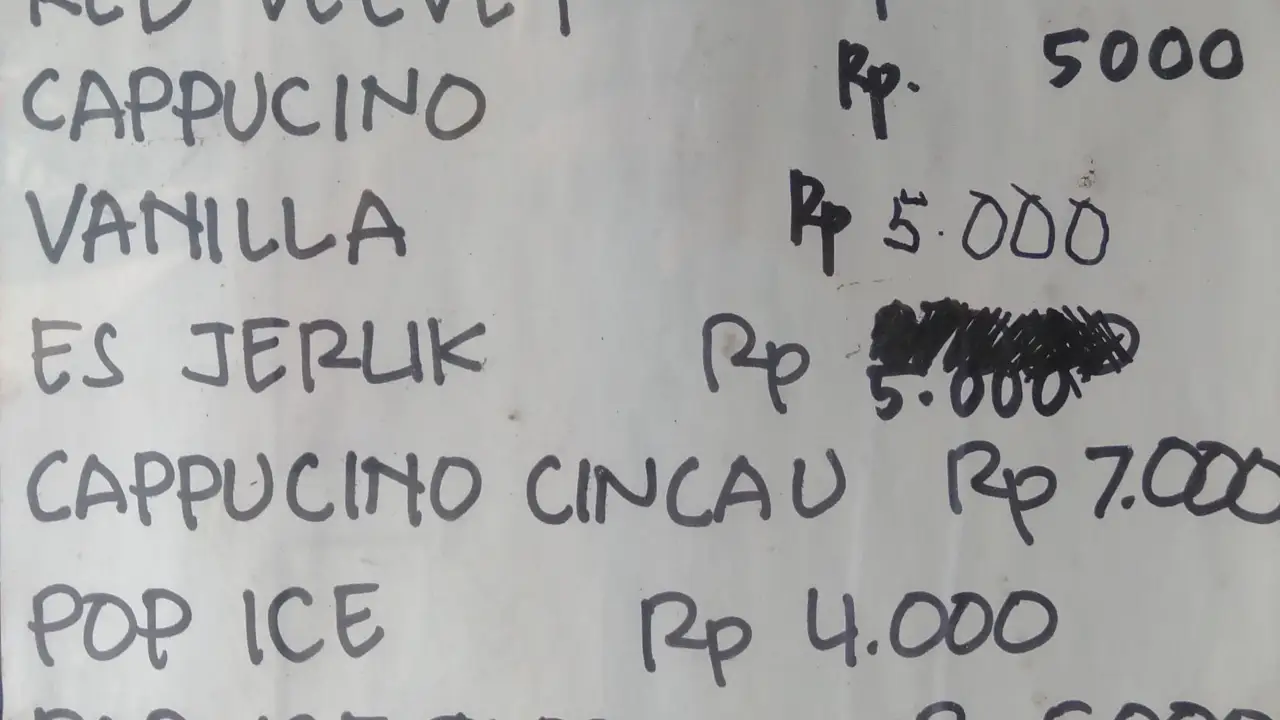 RED VELVET
CAPPUCINO Rp. 5000
VANILLA Rp 5.000
ES JERUK Rp 5.000
CAPPUCINO CINCAU Rp 7.000
POP ICE Rp 4.000